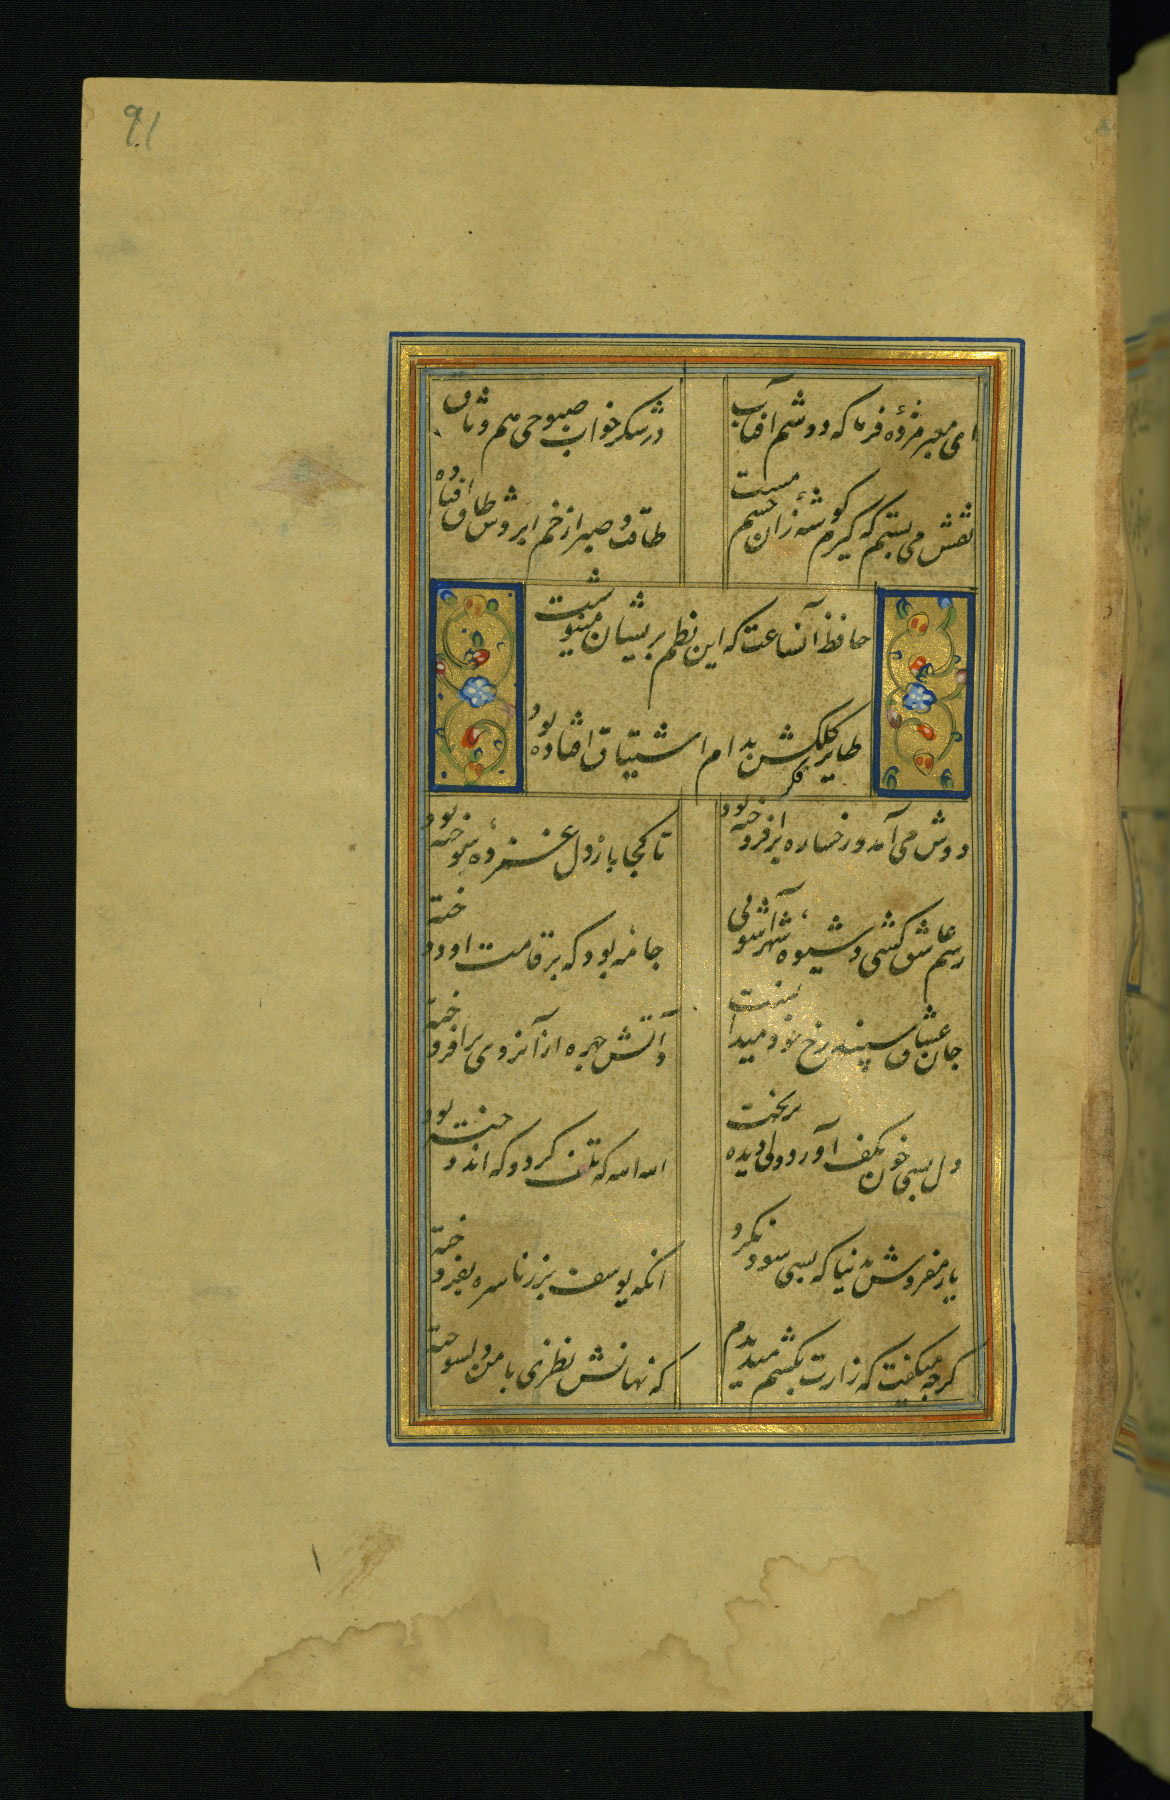 91
ای معبر مژدهٔ فرما که دوشم آفتاب
در شکر خواب صبوحی هم وثاق افتاده
نقش می بستم که گیرم گوشهٔ زان چشم مست
طاقت و صبر از خم ابروش طاق افتاده
حافظ آنساعت که این نظم پریشان مینوشت
طایر فکرش بدام اشتیاق افتاده بود
دوش می آمد و رخساره برافروخته بود
تا کجا باز دل غمزدهٔ سوخته بود
رسم عاشق کشی و شیوهٔ شهرآشوبی
جامهٔ بود که بر قامت او دوخته
جان عشاق سپند رخ خود میدانست
و آتش چهره از آنروی برافروخته
دل بسی خون بکف آورد ولی دیده بریخت
الله الله که تلف کرد و که اندوخته بود
یار مفروش بدنیا که بسی سود نکرد
آنکه یوسف بزر ناسره بفروخته
گرچه میگفت که زارت بکشم میدیدم
که نهانش نظری با من دلسوخته